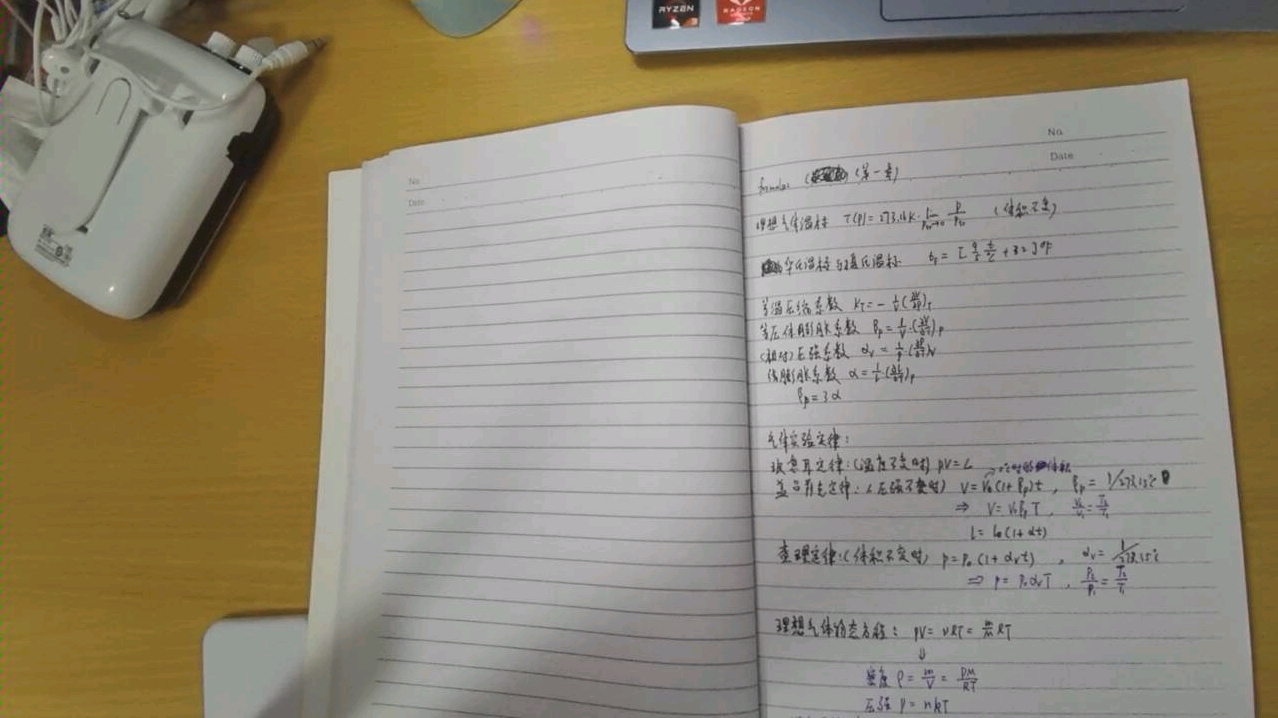 RYZEN
RADEON
No
Date
No.
Date
formulas (第一章)
理想气体温标 T(p)=273.16K·lim p_tr→0 p/p_tr (体积不变)
华氏温标与摄氏温标 t_F=[9/5 t/℃+32]°F
等温压缩系数 κ_T=-1/V(∂V/∂p)_T
等压体膨胀系数 β_p=1/V·(∂V/∂T)_p
(相对)压强系数 α_V=1/p·(∂p/∂T)_V
线膨胀系数 α=1/l·(∂l/∂T)_p
β_p=3α
气体实验定律:
玻意耳定律:(温度不变时) pV=C
→0℃时的体积
盖吕萨克定律:(压强不变时) V=V₀(1+β_p)t, β_p=1/273.15℃
⇒ V=V₀β_pT, V₂/V₁=T₂/T₁
l=l₀(1+αt)
查理定律:(体积不变时) p=p₀(1+α_Vt), α_V=1/273.15℃
⇒ p=p₀α_VT, p₂/p₁=T₂/T₁
理想气体物态方程: pV=νRT=m/M RT
⇓
密度 ρ=m/V=pM/RT
压强 p=nkT